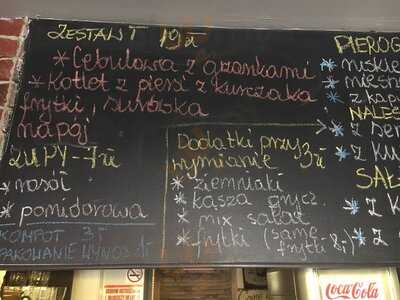 ZESTAW I 19zł
* Cebulowa z grzankami
* Kotlet z piersi z kurczaka
frytki, surówka
napój
ZUPY - 7zł
* rosół
* pomidorowa
KOMPOT 3,-
PAKOWANIE WYNOS 1,-
Dodatki przy
wymianie 3zł
* ziemniaki
* kasza grycz.
* mix sałat
* frytki (same
frytki 8,-)
PIEROG
* ruskie
* z
NALEŚ
* z se
* z ku
SAŁ
* z k
* z
Coca-Cola